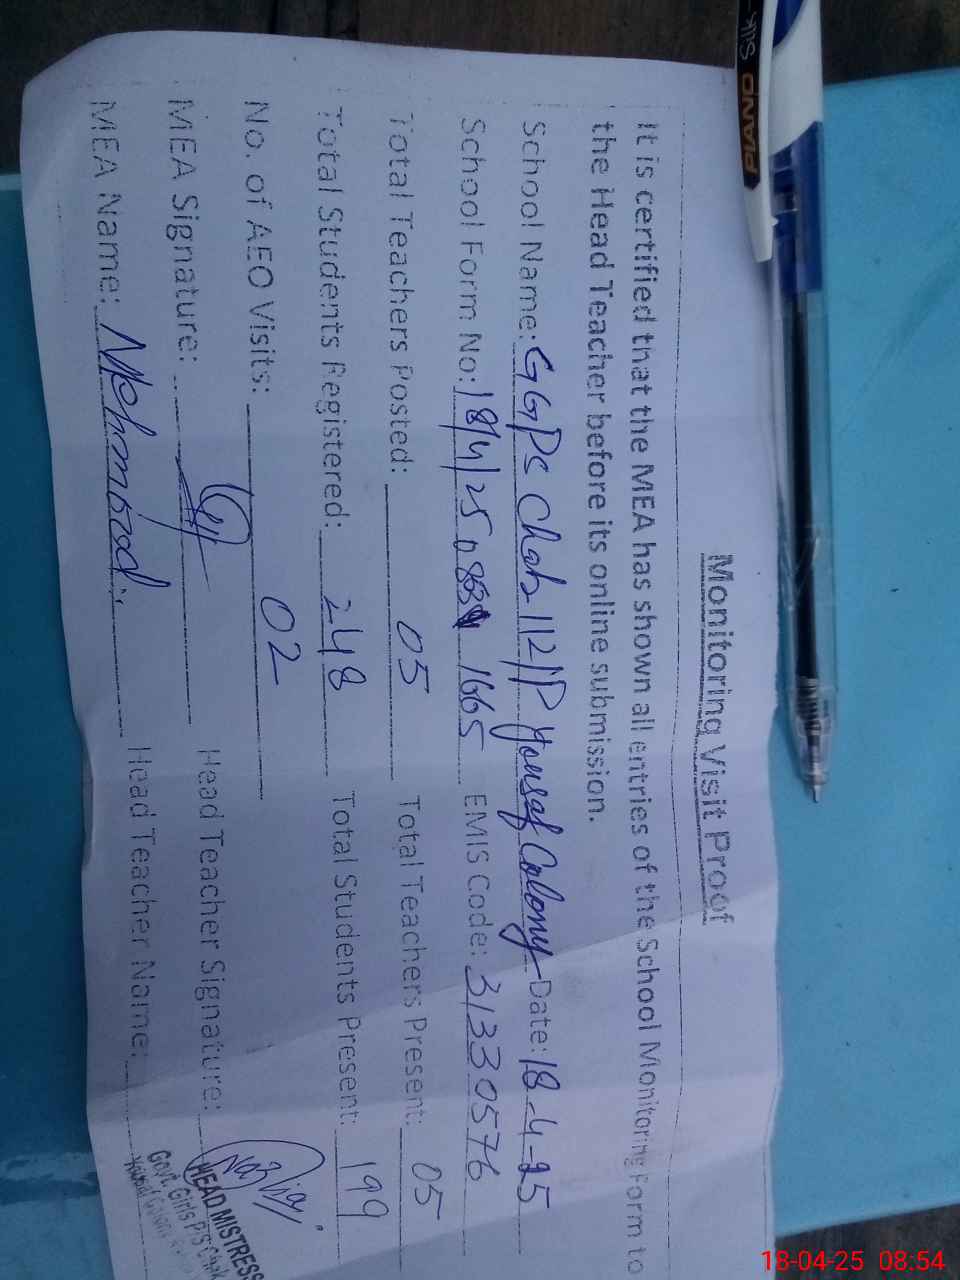 Monitoring Visit Proof
It is certified that the MEA has shown all entries of the School Monitoring Form to
the Head Teacher before its online submission.
School Name: GGPS Chak 112/P Yousaf Colony Date: 18-4-25
School Form No: 18/4/25 1665 EMIS Code: 31330576
Total Teachers Posted: 05 Total Teachers Present: 05
Total Students Registered: 248 Total Students Present: 199
No. of AEO Visits: 02
MEA Signature: Head Teacher Signature:
MEA Name: Mehmood Head Teacher Name:
HEAD MISTRESS
Govt. Girls P/S Chak
PIANO
Silk
18-04-25 08:54